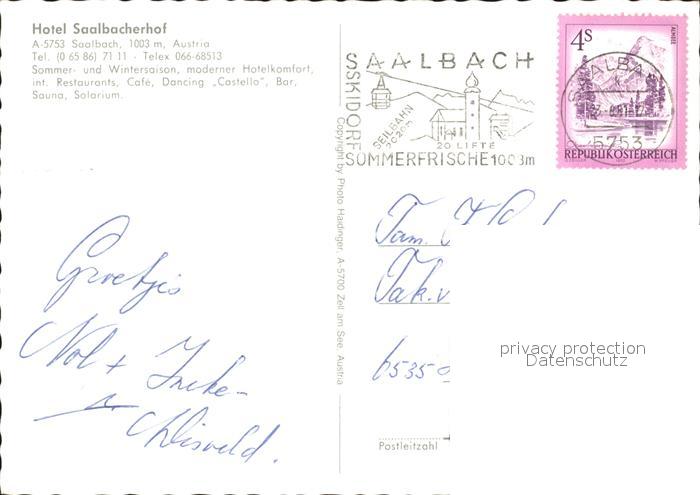 Hotel Saalbacherhof
A-5753 Saalbach, 1003 m, Austria
Tel. (0 65 86) 71 11 · Telex 066-68513
Sommer- und Wintersaison, moderner Hotelkomfort,
int. Restaurants, Café, Dancing „Castello", Bar,
Sauna, Solarium.
SAALBACH
SKIDORF
SEILBAHN
2020m
20 LIFTE
SOMMERFRISCHE 1003m
4S
ALMSEE
SAALBACH
5753
REPUBLIK ÖSTERREICH
Copyright by Photo Haidinger, A-5700 Zell am See, Austria
Groetjes
Nol + Ineke
Fam.
Tak.v
6535
Postleitzahl
privacy protection
Datenschutz